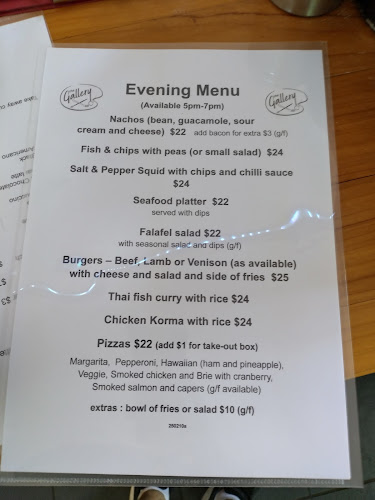 Gallery
Gallery
Evening Menu
(Available 5pm-7pm)
Nachos (bean, guacamole, sour
cream and cheese) $22 add bacon for extra $3 (g/f)
Fish & chips with peas (or small salad) $24
Salt & Pepper Squid with chips and chilli sauce
$24
Seafood platter $22
served with dips
Falafel salad $22
with seasonal salad and dips (g/f)
Burgers – Beef, Lamb or Venison (as available)
with cheese and salad and side of fries $25
Thai fish curry with rice $24
Chicken Korma with rice $24
Pizzas $22 (add $1 for take-out box)
Margarita, Pepperoni, Hawaiian (ham and pineapple),
Veggie, Smoked chicken and Brie with cranberry,
Smoked salmon and capers (g/f available)
extras : bowl of fries or salad $10 (g/f)
Americano